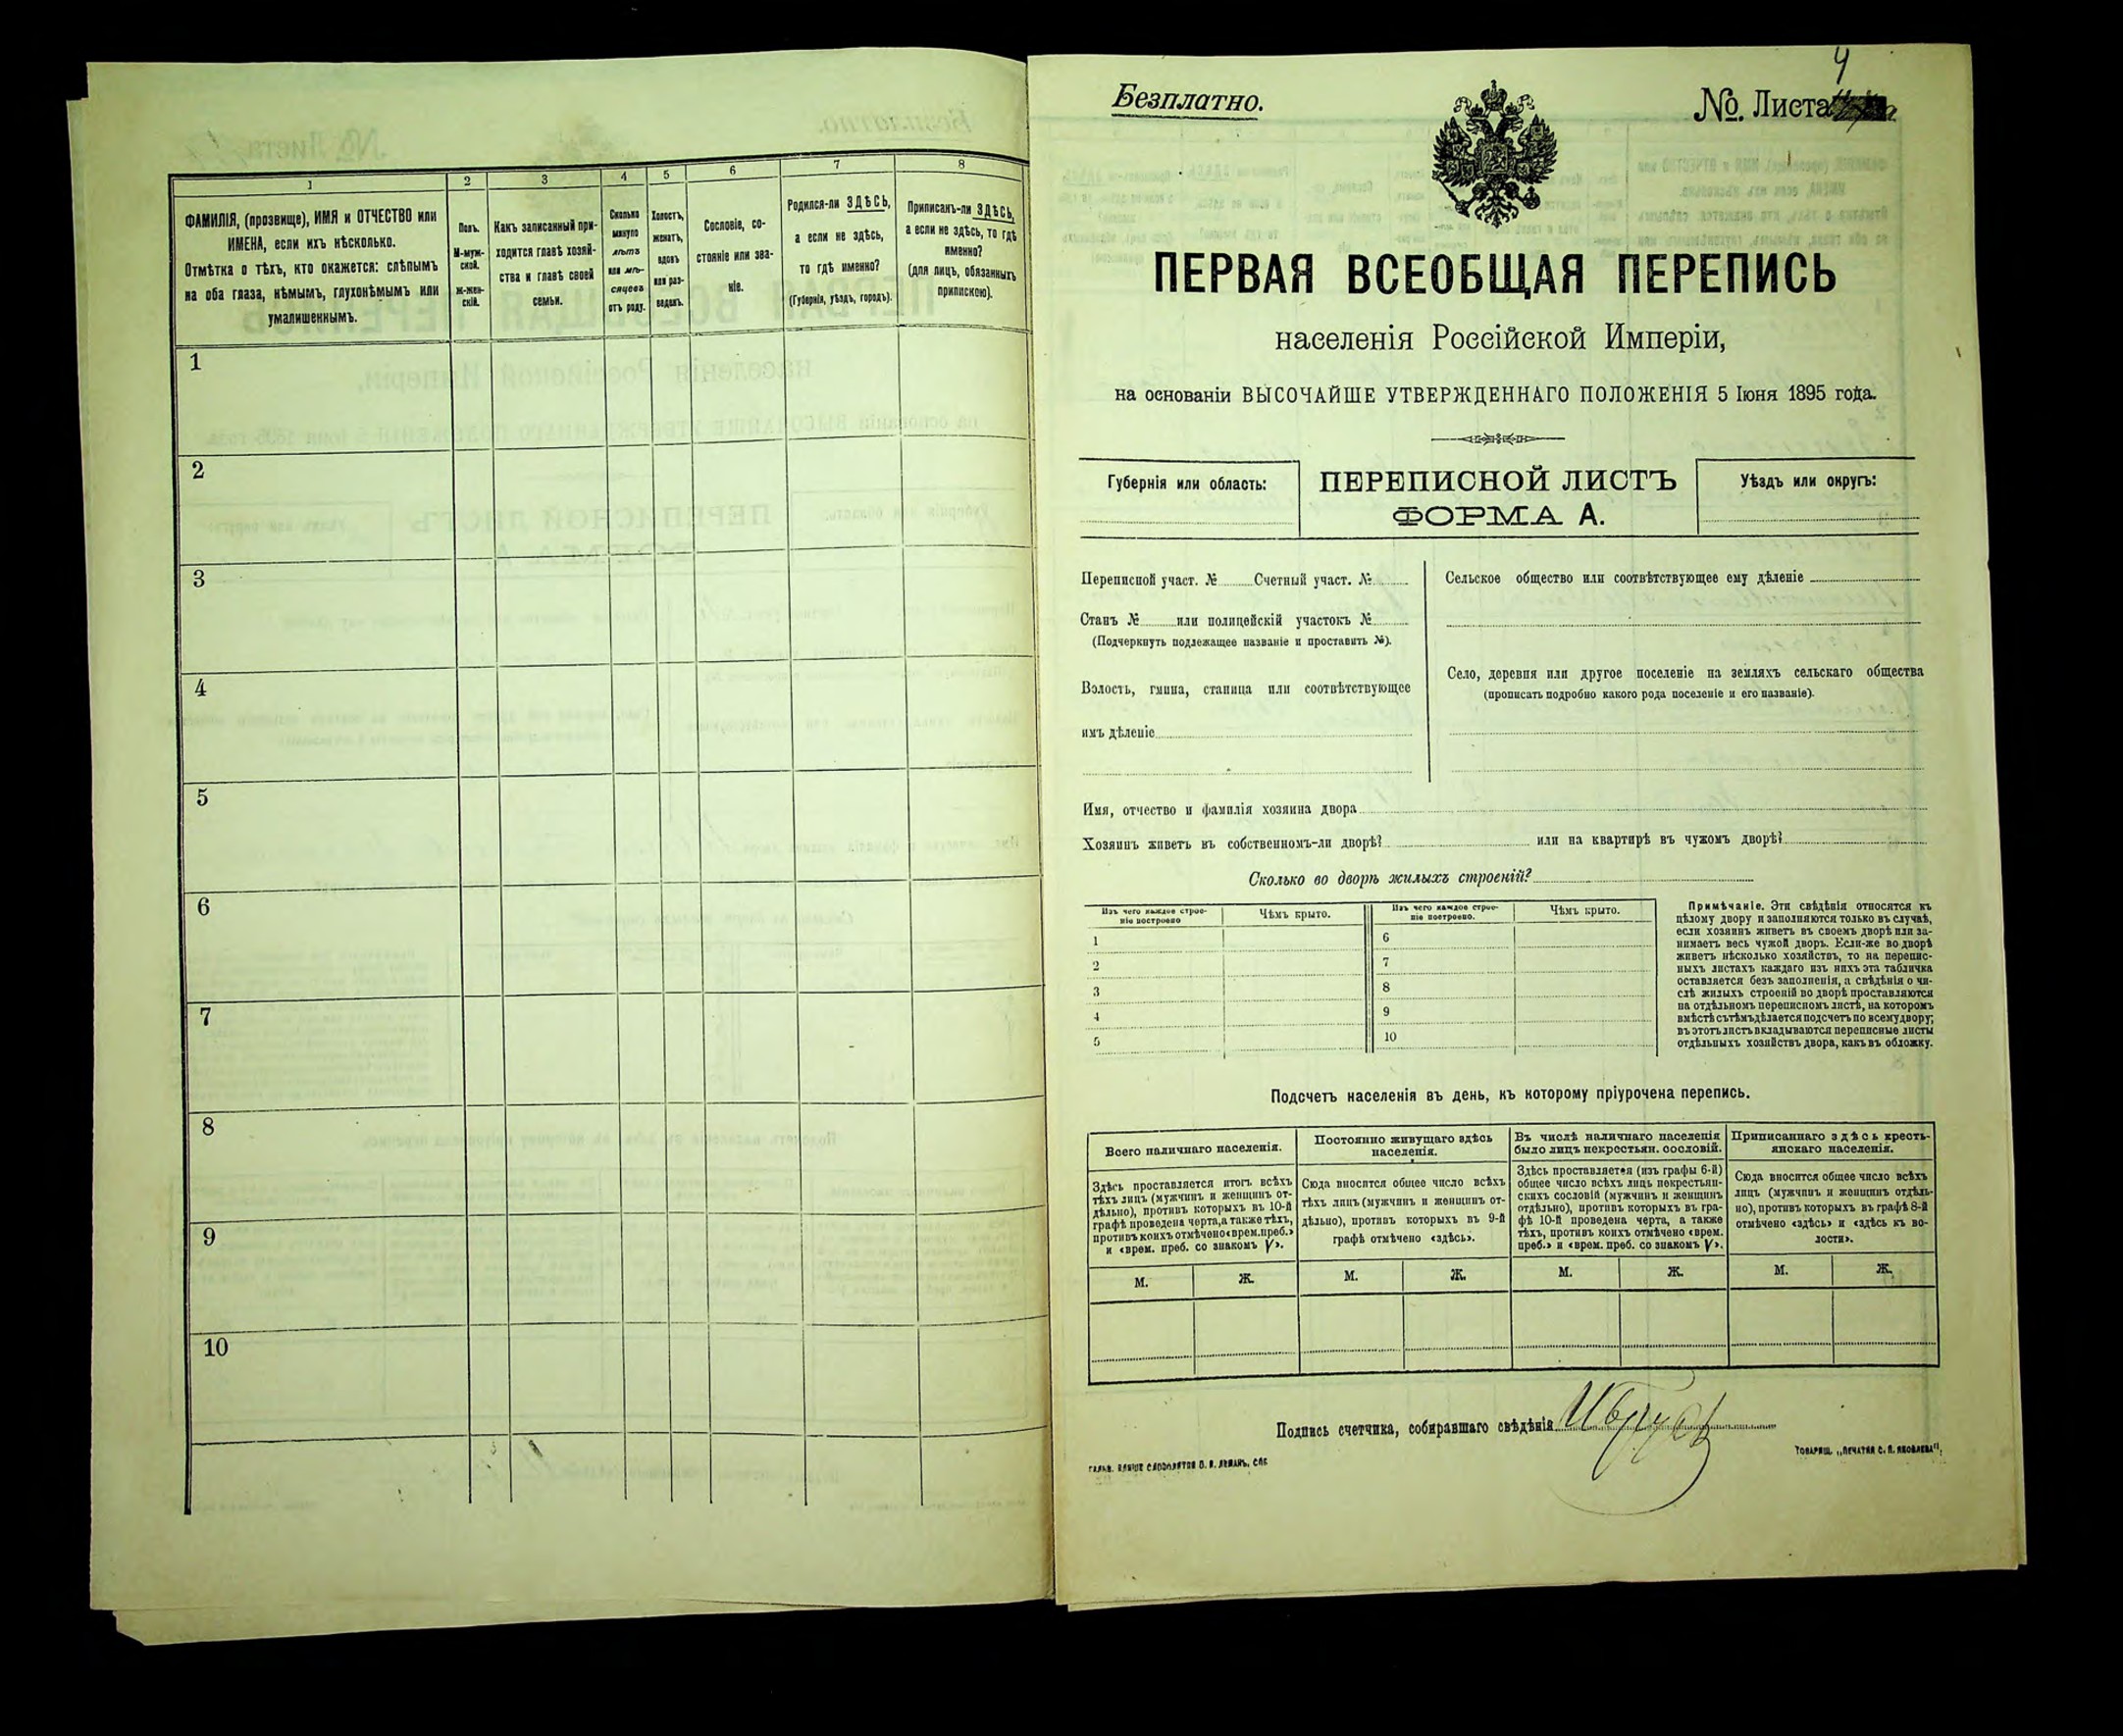 1
2
3
4
5
6
7
8
ФАМИЛІЯ, (прозвище), ИМЯ и ОТЧЕСТВО или
ИМЕНА, если ихъ нѣсколько.
Отмѣтка о тѣхъ, кто окажется: слѣпымъ
на оба глаза, нѣмымъ, глухонѣмымъ или
умалишеннымъ.
Полъ.
М-муж-
ской.
Ж-жен-
скій.
Какъ записанный при-
ходится главѣ хозяй-
ства и главѣ своей
семьи.
Сколько
минуло
лѣтъ
или мѣ-
сяцевъ
отъ роду.
Холостъ,
женатъ,
вдовъ
или раз-
веденъ.
Сословіе, со-
стояніе или зва-
ніе.
Родился-ли ЗДѢСЬ,
а если не здѣсь,
то гдѣ именно?
(Губернія, уѣздъ, городъ).
Приписанъ-ли ЗДѢСЬ,
а если не здѣсь, то гдѣ
именно?
(для лицъ, обязанныхъ
припискою).
1
2
3
4
5
6
7
8
9
10
4
Безплатно.
№. Листа
ПЕРВАЯ ВСЕОБЩАЯ ПЕРЕПИСЬ
населенія Россійской Имперіи,
на основаніи ВЫСОЧАЙШЕ УТВЕРЖДЕННАГО ПОЛОЖЕНІЯ 5 Іюня 1895 года.
Губернія или область:
ПЕРЕПИСНОЙ ЛИСТЪ
ФОРМА А.
Уѣздъ или округъ:
Переписной участ. № Счетный участ. №
Станъ № или полицейскій участокъ №
(Подчеркнуть подлежащее названіе и проставить №).
Волость, гмина, станица или соотвѣтствующее
имъ дѣленіе
Сельское общество или соотвѣтствующее ему дѣленіе
Село, деревня или другое поселеніе на земляхъ сельскаго общества
(прописать подробно какого рода поселеніе и его названіе).
Имя, отчество и фамилія хозяина двора
Хозяинъ живетъ въ собственномъ-ли дворѣ? или на квартирѣ въ чужомъ дворѣ?
Сколько во дворѣ жилыхъ строеній?
Изъ чего каждое строе-
ніе построено
Чѣмъ крыто.
Изъ чего каждое строе-
ніе построено.
Чѣмъ крыто.
1
2
3
4
5
6
7
8
9
10
Примѣчаніе. Эти свѣдѣнія относятся къ
цѣлому двору и заполняются только въ случаѣ,
если хозяинъ живетъ въ своемъ дворѣ или за-
нимаетъ весь чужой дворъ. Если-же во дворѣ
живетъ нѣсколько хозяйствъ, то на перепис-
ныхъ листахъ каждаго изъ нихъ эта табличка
оставляется безъ заполненія, а свѣдѣнія о чи-
слѣ жилыхъ строеній во дворѣ проставляются
на отдѣльномъ переписномъ листѣ, на которомъ
вмѣстѣ съ тѣмъ дѣлается подсчетъ по всему двору;
въ этотъ листъ вкладываются переписные листы
отдѣльныхъ хозяйствъ двора, какъ въ обложку.
Подсчетъ населенія въ день, къ которому пріурочена перепись.
Всего наличнаго населенія.
Здѣсь проставляется итогъ всѣхъ
тѣхъ лицъ (мужчинъ и женщинъ от-
дѣльно), противъ которыхъ въ 10-й
графѣ проведена черта, а также тѣхъ,
противъ коихъ отмѣчено «врем. преб.»
и «врем. преб. со знакомъ V».
Постоянно живущаго здѣсь
населенія.
Сюда вносится общее число всѣхъ
тѣхъ лицъ (мужчинъ и женщинъ от-
дѣльно), противъ которыхъ въ 9-й
графѣ отмѣчено «здѣсь».
Въ числѣ наличнаго населенія
было лицъ некрестьян. сословій.
Здѣсь проставляется (изъ графы 6-й)
общее число всѣхъ лицъ некрестьян-
скихъ сословій (мужчинъ и женщинъ
отдѣльно), противъ которыхъ въ гра-
фѣ 10-й проведена черта, а также
тѣхъ, противъ коихъ отмѣчено «врем.
преб.» и «врем. преб. со знакомъ V».
Приписаннаго здѣсь кресть-
янскаго населенія.
Сюда вносится общее число всѣхъ
лицъ (мужчинъ и женщинъ отдѣль-
но), противъ которыхъ въ графѣ 8-й
отмѣчено «здѣсь» и «здѣсь къ во-
лости».
М. Ж. М. Ж. М. Ж. М. Ж.
Подпись счетчика, собиравшаго свѣдѣнія
ТОВАРИЩ. „ПЕЧАТНЯ С. П. ЯКОВЛЕВА".